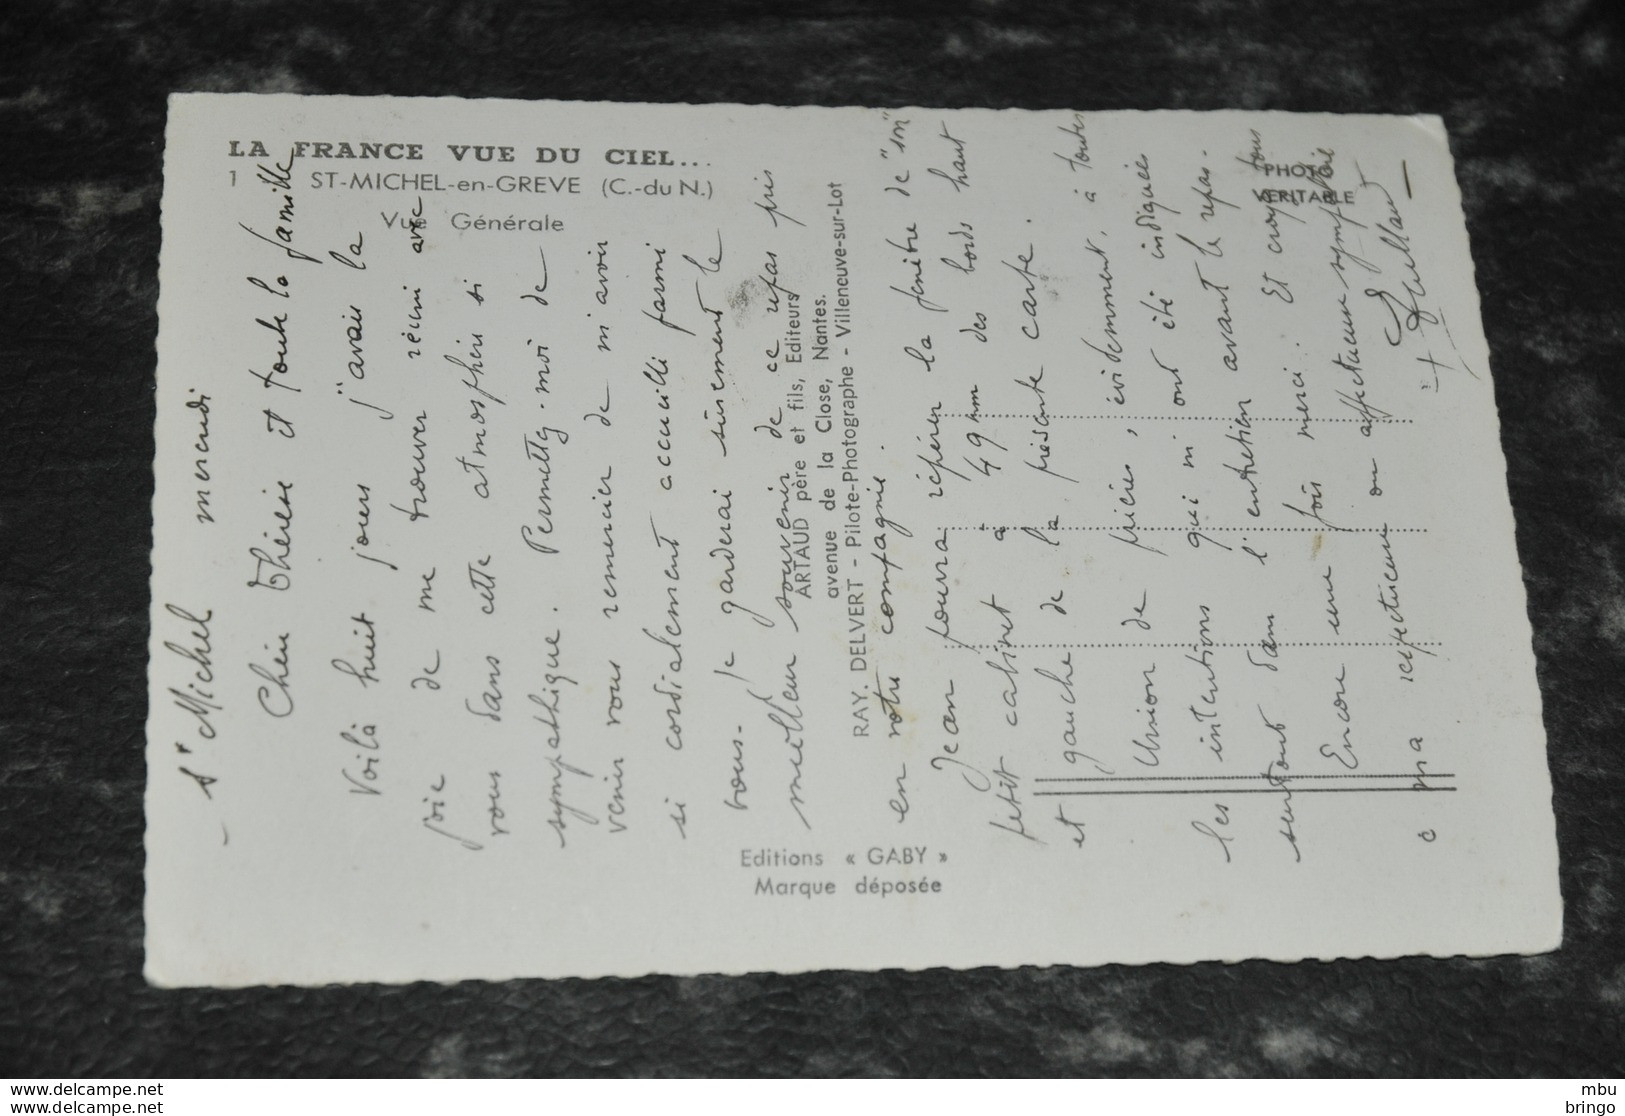 LA FRANCE VUE DU CIEL...
1 ST-MICHEL-en-GREVE (C.-du N.)
Vue Générale
PHOTO
VERITABLE
ARTAUD père et fils, Editeurs
avenue de la Close, Nantes.
RAY. DELVERT - Pilote-Photographe - Villeneuve-sur-Lot
Editions « GABY »
Marque déposée
- St Michel mercredi
Chère Thérèse et toute la famille
Voilà huit jours j'avais la
joie de me trouver réuni avec
vous dans cette atmosphère si
sympathique. Permettez-moi de
venir vous remercier de m'avoir
si cordialement accueilli parmi
vous. Je garderai sûrement le
meilleur souvenir de ce repas pris
en votre compagnie.
Jean pourra repérer la fenêtre de "son"
petit cabinet à 49 mm des bords haut
et gauche de la présente carte.
Union de prières, évidemment, à toutes
les intentions qui m'ont été indiquées
surtout dans l'entretien avant le repas.
Encore une fois merci. Et croyez tous
à ma respectueuse ou affectueuse sympathie
c
www.delcampe.net
www.delcampe.net
mbu
bringo